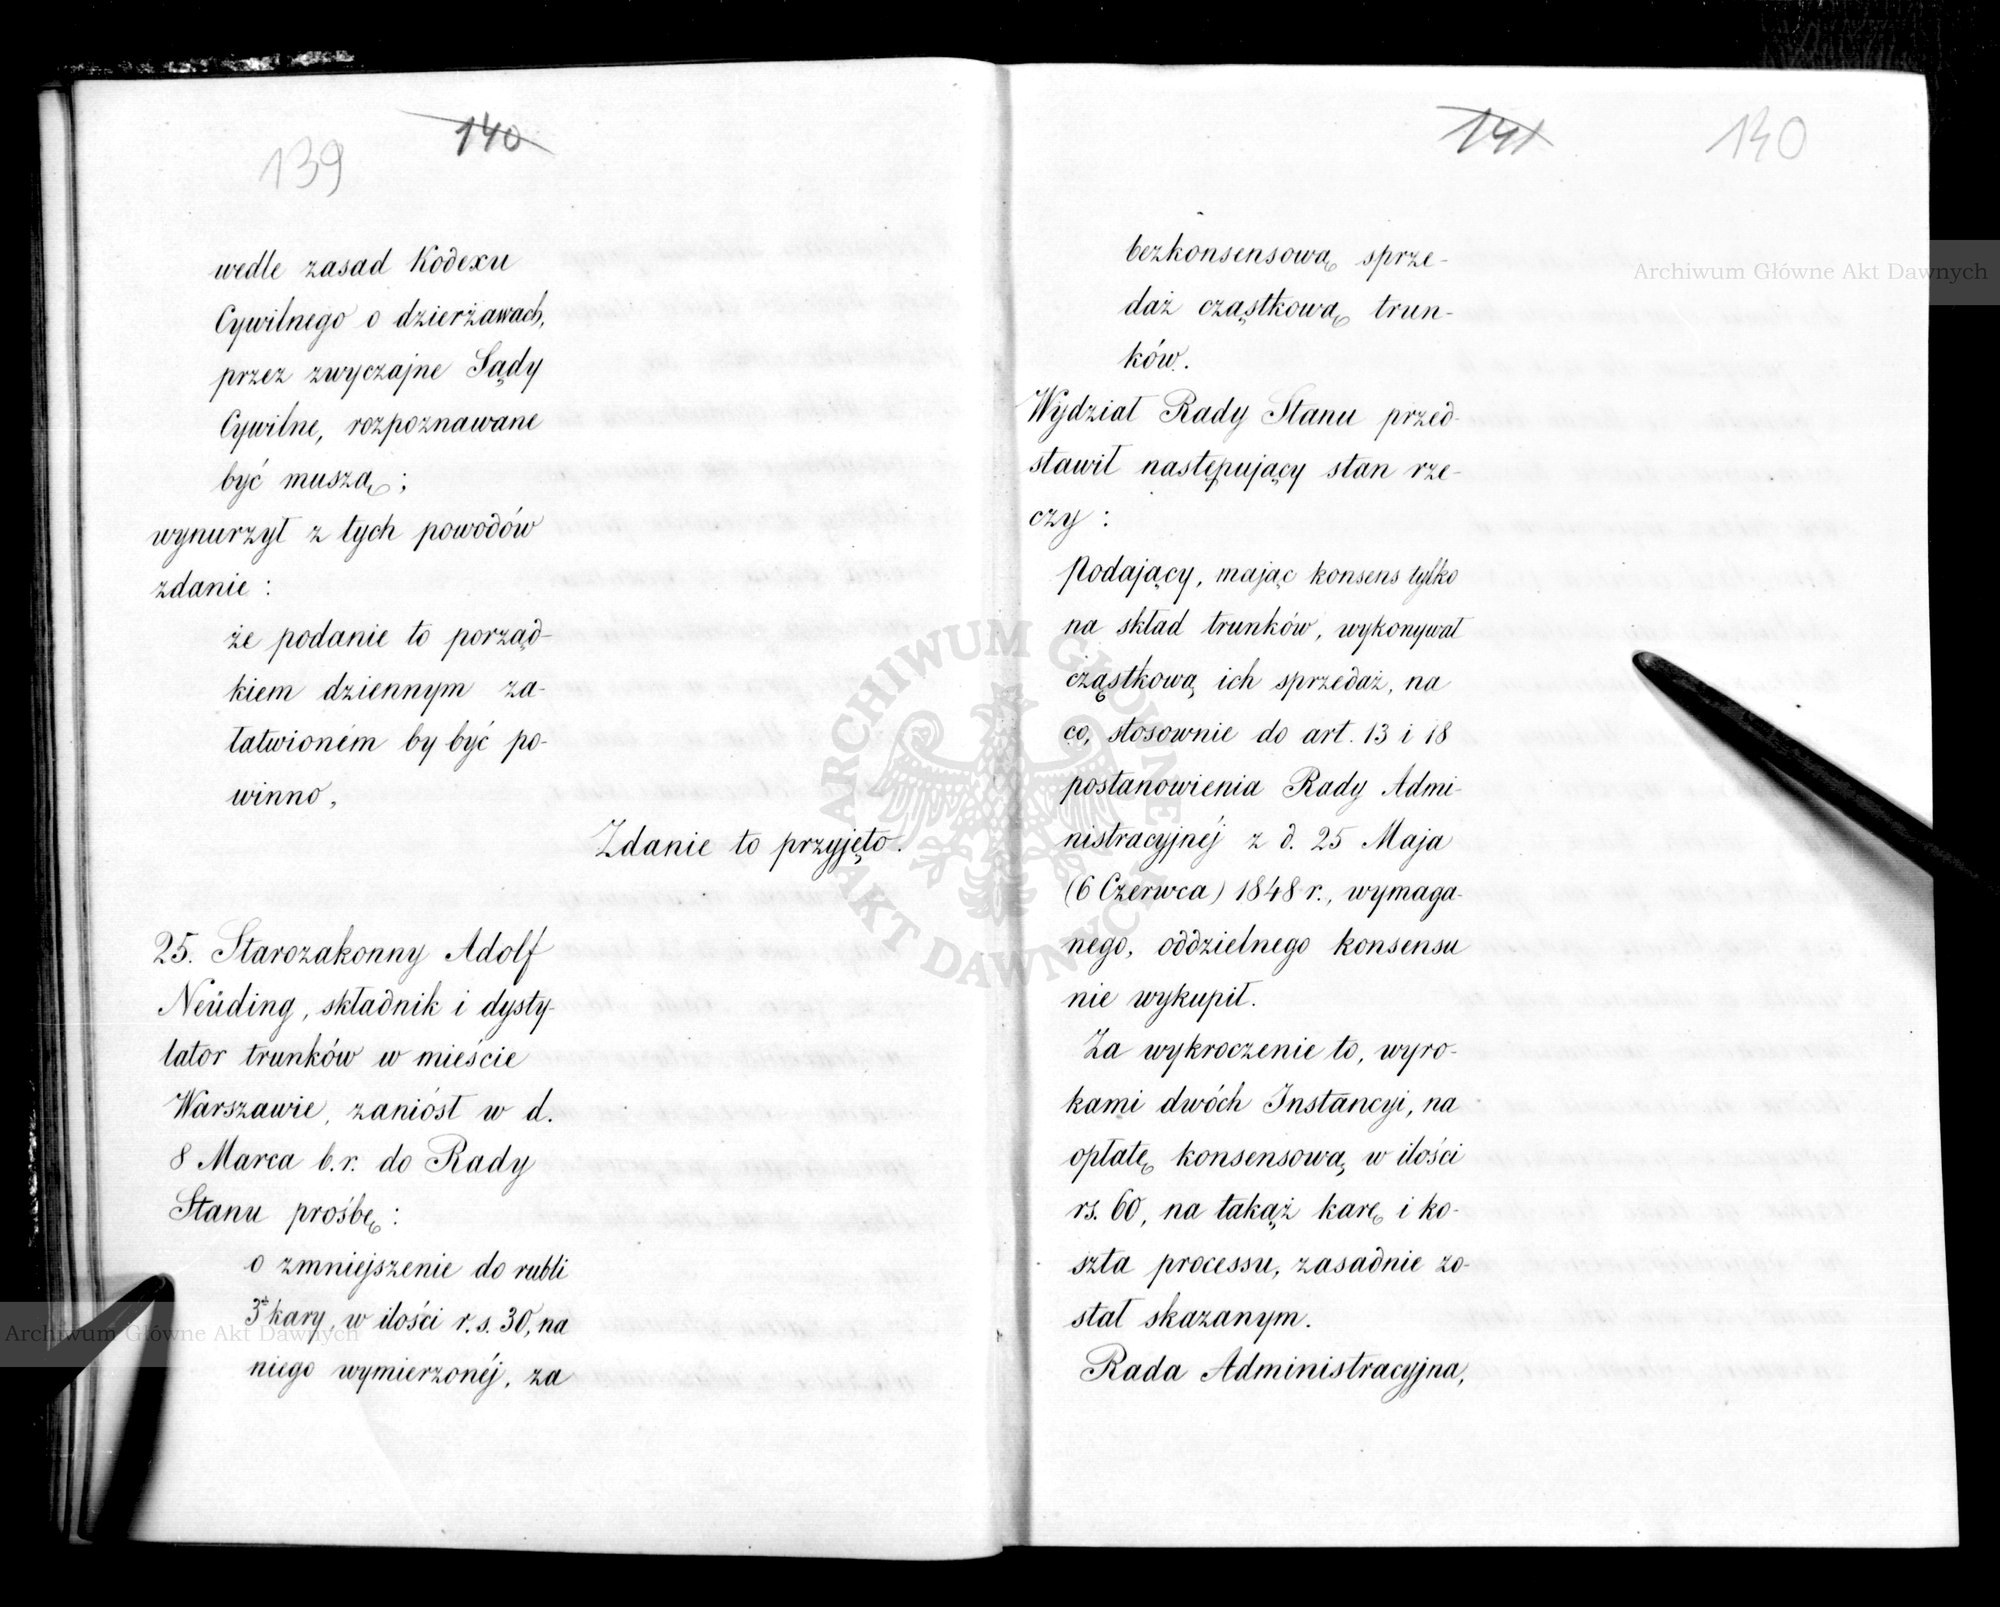 139
140
wedle zasad Kodexu
Cywilnego o dzierżawach,
przez zwyczajne Sądy
Cywilne, rozpoznawane
być muszą;
wynurzył z tych powodów
zdanie:
że podanie to porząd-
kiem dziennym za-
łatwioném by być po-
winno,
Zdanie to przyjęto.
25. Starozakonny Adolf
Neüding, składnik i dysty-
lator trunków w mieście
Warszawie, zaniósł w d.
8 Marca b.r. do Rady
Stanu prośbę:
o zmniejszenie do rubli
3ch kary, w ilości r.s. 30, na
niego wymierzonéj, za
141
140
bezkonsensową sprze-
daż cząstkową trun-
ków.
Wydział Rady Stanu przed-
stawił następujący stan rze-
czy:
Podający, mając konsens tylko
na skład trunków, wykonywał
cząstkową ich sprzedaż, na
co, stosownie do art. 13 i 18
postanowienia Rady Admi-
nistracyjnéj z d. 25 Maja
(6 Czerwca) 1848 r., wymaga-
nego, oddzielnego konsensu
nie wykupił.
Za wykroczenie to, wyro-
kami dwóch Instancyi, na
opłatę konsensową w ilości
rs. 60, na takąż karę i ko-
szta processu, zasadnie zo-
stał skazanym.
Rada Administracyjna,
Archiwum Główne Akt Dawnych
Archiwum Główne Akt Dawnych
ARCHIWUM GŁÓWNE
AKT DAWNYCH